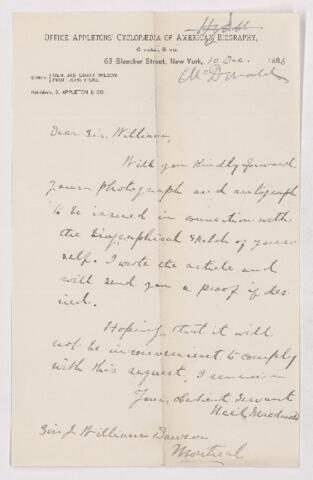 OFFICE APPLETONS' CYCLOPÆDIA OF AMERICAN BIOGRAPHY,
63 Bleecker Street, New York, 10 Dec. 1886
McDonald
GEN. JAS GRANT WILSON
PROF. JOHN FISKE
Publishers, D. APPLETON & CO
Dear Sir William,
Will you kindly forward
your photograph and autograph
to be issued in connection with
the biographical sketch of your-
self. I wrote the article and
will send you a proof if des-
ired.
Hoping that it will
not be inconvenient to comply
with this request, I remain
Your obedient servant
Neil Macdonald
Sir J. William Dawson
Montreal